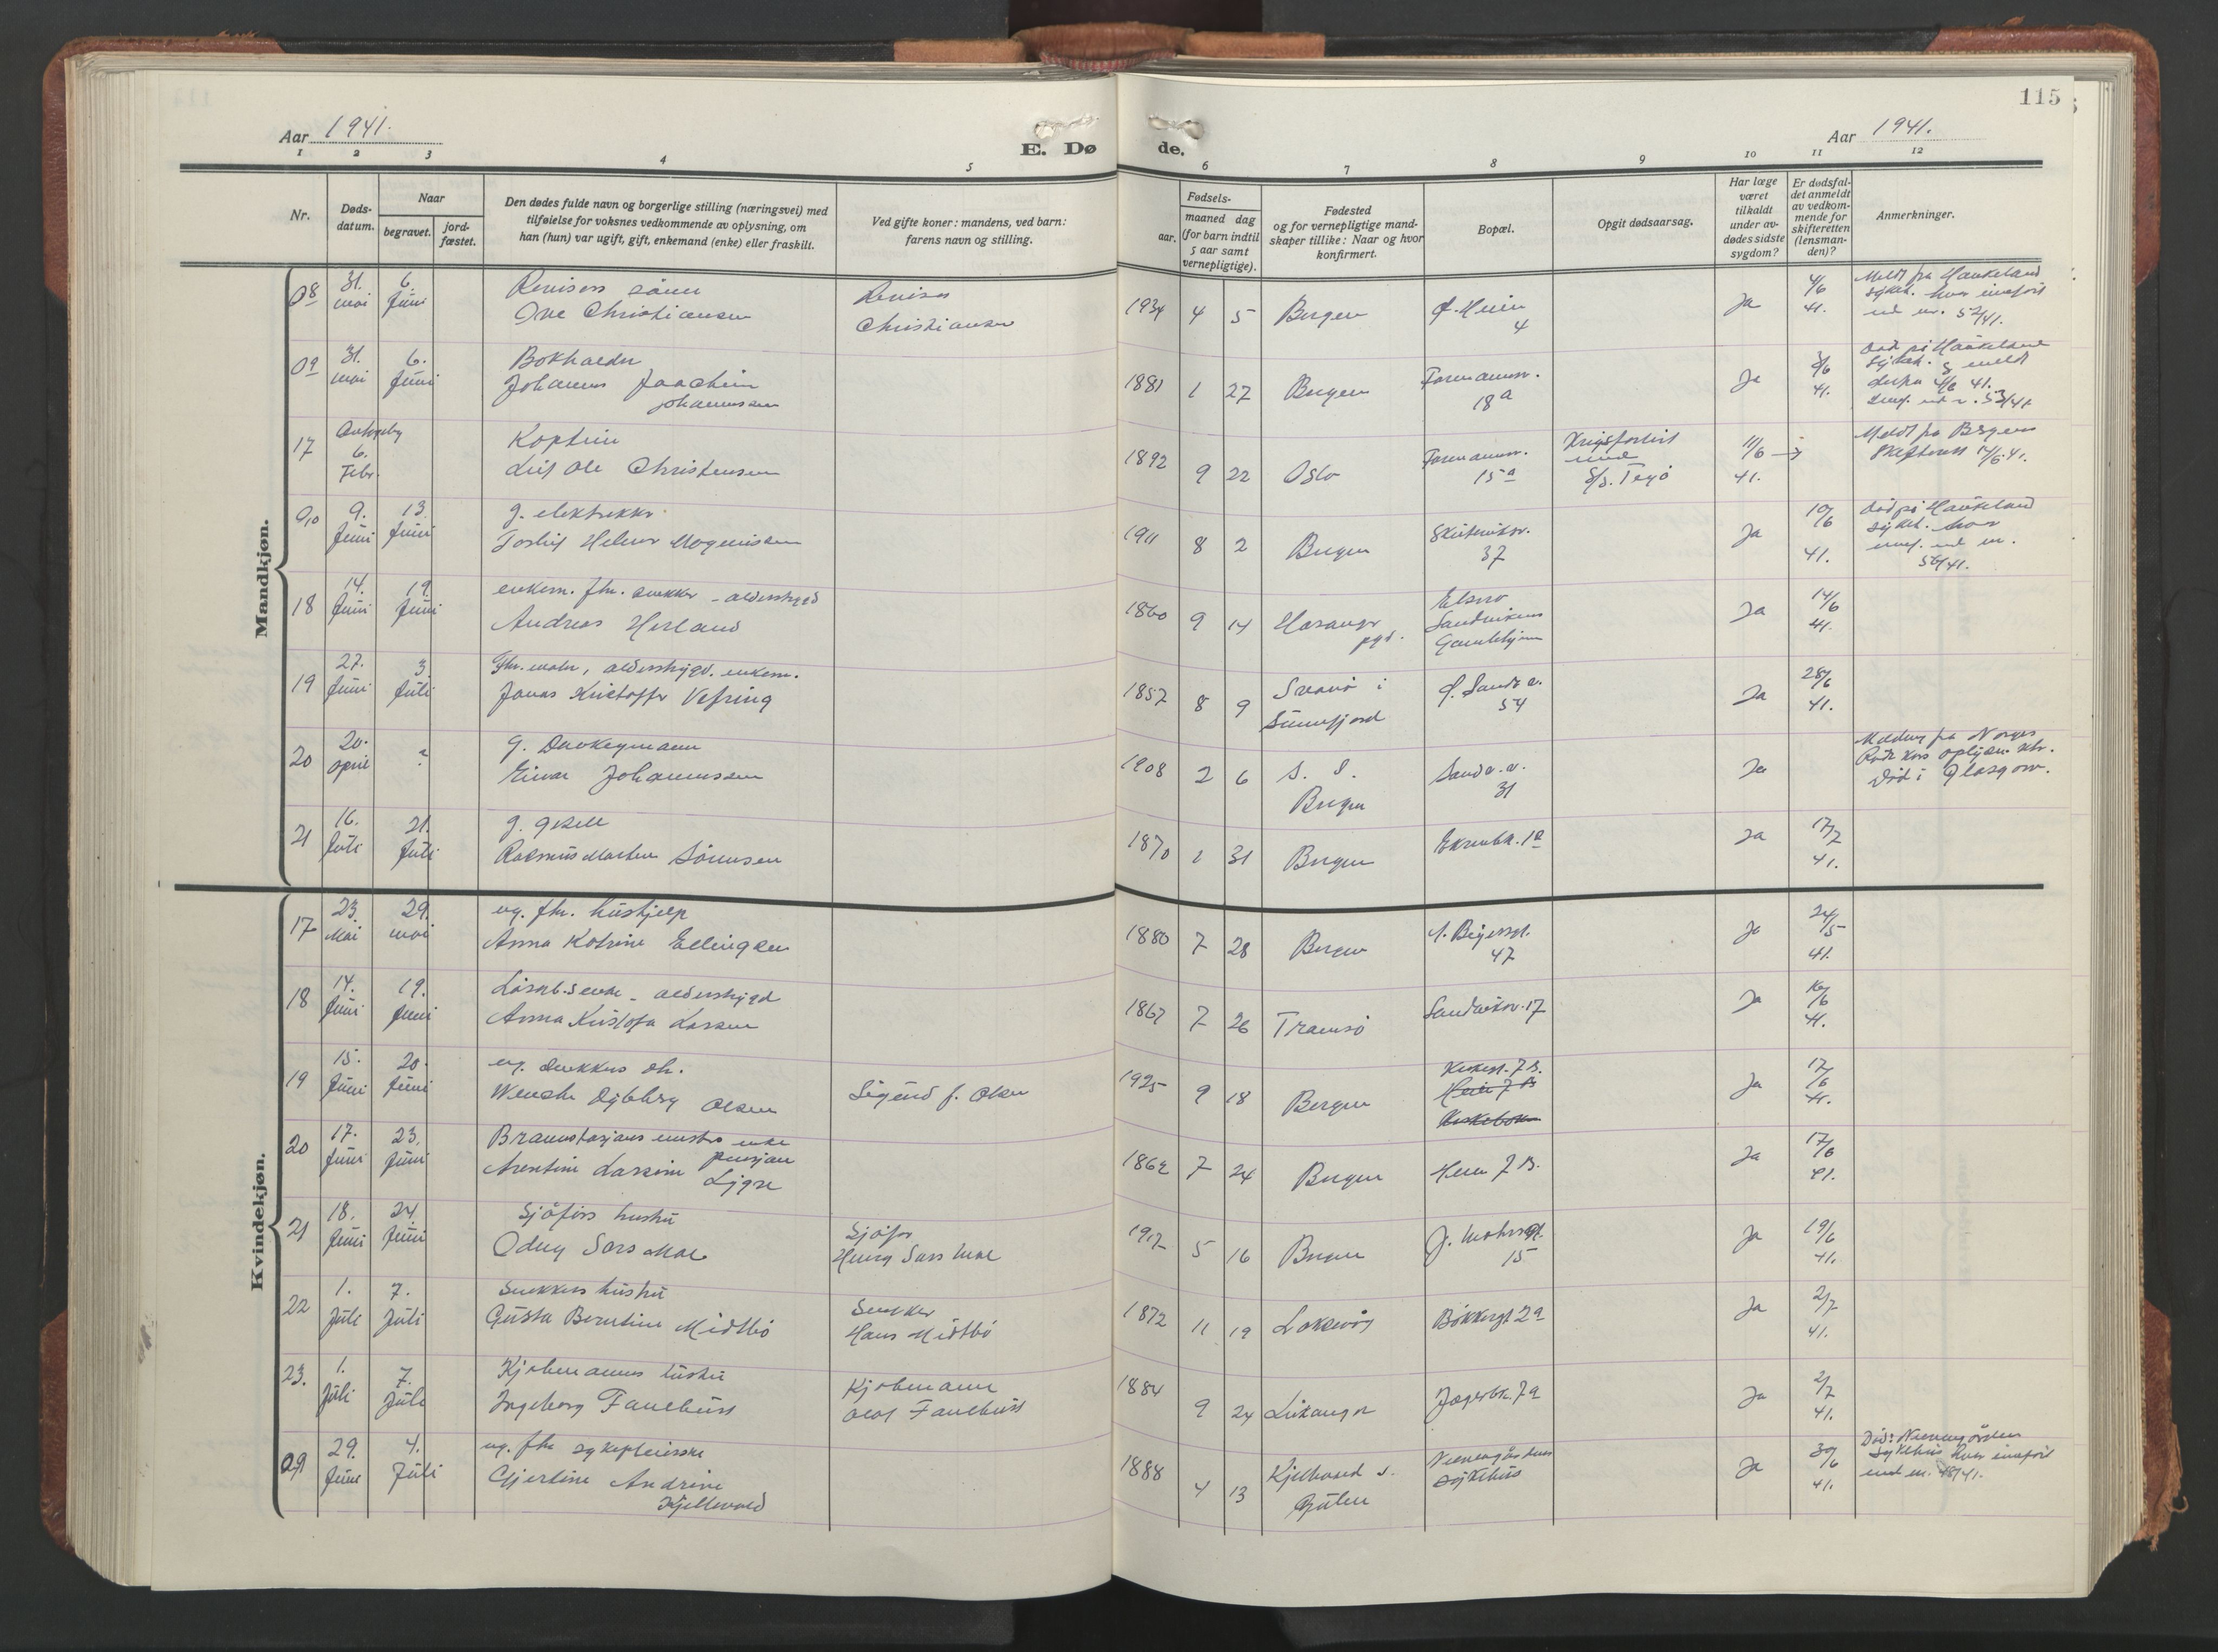 115
Aar 1941.
E. Døde.
Aar 1941.
1 2 3 4 5 6 7 8 9 10 11 12
Nr.
Døds-
datum.
Naar
begravet.
jord-
fæstet.
Den dødes fulde navn og borgerlige stilling (næringsvei) med
tilføielse for voksnes vedkommende av oplysning, om
han (hun) var ugift, gift, enkemand (enke) eller fraskilt.
Ved gifte koner: mandens, ved barn:
farens navn og stilling.
Fødsels-
aar.
maaned dag
(for barn indtil
5 aar samt
vernepligtige).
Fødested
og for vernepligtige mand-
skaper tillike: Naar og hvor
konfirmert.
Bopæl.
Opgit dødsaarsag.
Har læge
været
tilkaldt
under av-
dødes sidste
sygdom?
Er dødsfal-
det anmeldt
av vedkom-
mende for
skifteretten
(lensman-
den)?
Anmerkninger.
Mandkjøn.
08 31. mai 6. Juni
Revisors sønn
Ove Christiansen
Revisor
Christiansen
1934 4 5 Bergen
4
Ja 4/6 41.
Meldt fra Haukeland
sykeh. hvor innført
ved nr. 52/41.
09 31. mai 6. Juni
Bokholder
Johannes Joachim
Johannessen
1881 1 27 Bergen
Formannsv.
18a
Ja 3/6 41.
Død på Haukeland
Sykeh. & meldt
derfra 4/6 41.
innf. ved nr. 53/41
17 Antagelig 6. Febr.
Kaptein
Leif Ole Christensen
1892 9 22 Oslo
Formannsv.
15a
Krigsforlist
med
S/S. Tejo
11/6 41.
Meldt fra Bergens
Skifterett 14/6 41.
010 9. Juni 13. Juni
g. elektriker
Torleif Helmer Mognissen
1911 8 2 Bergen
Skuteviksv.
37
Ja 10/6 41.
død på Haukeland
sykeh. hvor
innf. ved nr.
56/41.
18 14. Juni 19. Juni
enkem. fhv. snekker - alderstrygd
Andreas Herland
1860 9 14 Hosanger
pgd.
Elsero
Sandvikens
Gamlehjem
Ja 14/6 41.
19 27. Juni 3 Juli
Fhv. maler, alderstrygd. enkem.
Jonas Kristoffer Vefring
1857 8 9 Svanø i
Sunnfjord
54
Ja 28/6 41.
20 20. april ?
g. Donkeymann
Einar Johannessen
1908 2 6 S. S.
Bergen
Sandv.v.
31
Ja
Melding fra Norges
Røde Kors
Død i Glasgow.
21 16. Juli 21. Juli
g. gsell
Rasmus Marten Sörensen
1870 1 31 Bergen
Ekrenbk. 1a
Ja 17/7 41.
Kvindekjøn.
17 23. Mai 29. mai
ug. fhv. hushjelp
Anna Katrine Ellingsen
1880 7 28 Bergen
47
Ja 24/5 41.
18 14. Juni 19. Juni
enke - alderstrygd
Anna Kristofa Larsen
1867 7 26 Tromsö
Sandviksv. 17
Ja 16/6 41.
19 15. Juni 20. Juni
ug. snekkers dtr.
Wenche Dagbburg Olsen
Sigurd J. Olsen
1925 9 18 Bergen
Ja 17/6 41.
20 17. Juni 23. Juni
Brannstasjons enke
pensjon
Arentine Larsine Ligre
1862 7 24 Bergen
7 B.
Ja 17/6 41.
21 18. Juni 24. Juni
Sjåførs hustru
Odny Sars Moe
Sjåfør
Henry Sars Moe
1917 5 16 Bergen
J. Mohrsgt.
15
Ja 19/6 41.
22 1. Juli 7. Juli
Snekkers hustru
Gusta Berntine Midtbö
Snekker
Hans Midtbö
1872 11 19 Laksevåg
Bökkergt 2a
Ja 2/7 41.
23. 1. Juli 7. Juli
Kjøbmanns hustru
Ingeborg Fanebust
Kjøbmann
Olaf Fanebust
1884 9 24 Leikanger
Jægerbk. 7a
Ja 2/7 41.
09 29. Juni 4. Juli
ug. fhv sykepleierske
Gjertine Andrine
Kjellevold
1888 4 13 Kjellevold i
Gulen
Nevengårdens
sykehus
Ja 30/6 41.
Død i Nevengården
Sykehus hvor innført
ved nr. 48/41.